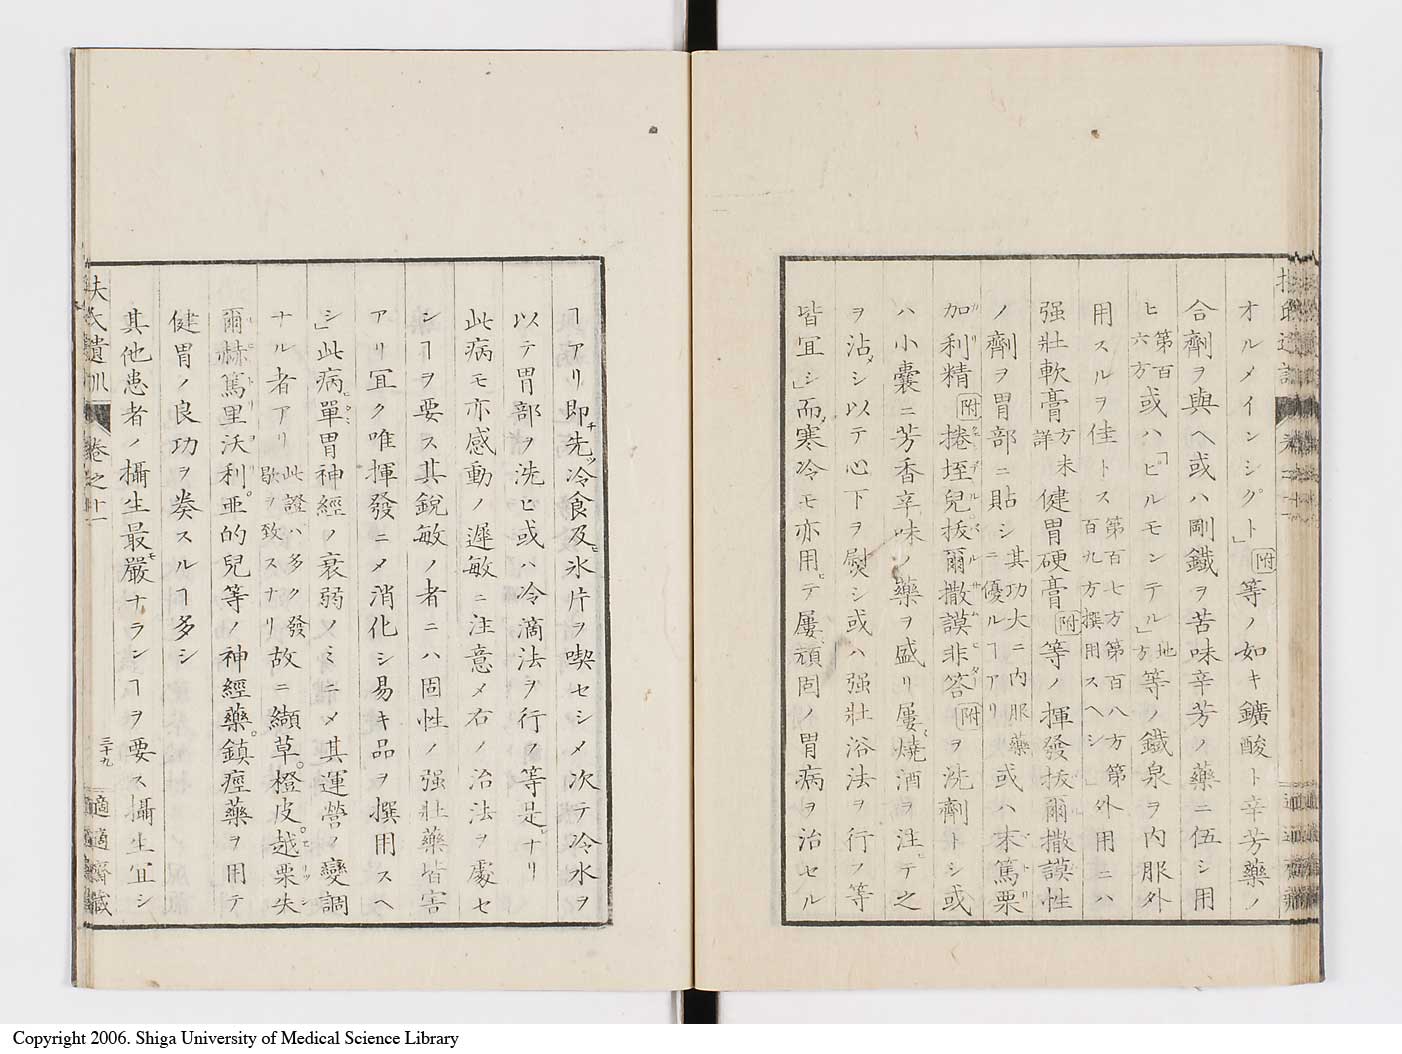 オルメインシグト」附等ノ如キ鑛酸ト辛芳藥ノ
合劑ヲ與ヘ或ハ剛鐵ヲ苦味辛芳ノ藥ニ伍シ用
ヒ第百六方或ハ「ピルモンテル」地方等ノ鐵泉ヲ内服外
用スルヲ佳トス第百七方第百八方第百九方撰用スヘシ」外用ニハ
强壯軟膏方末詳健胃硬膏附等ノ揮發抜爾撒謨性
ノ劑ヲ胃部ニ貼シ其功大ニ内服藥ニ優ルヿアリ或ハ末篤栗
加利精附捲埀兒抜爾撒謨非荅附ヲ洗劑トシ或
ハ小嚢ニ芳香辛味ノ藥ヲ盛リ屢燒酒ヲ注テ之
ヲ沾シ以テ心下ヲ熨シ或ハ强壯浴法ヲ行フ等
皆宜シ」而寒冷モ亦用テ屢頑固ノ胃病ヲ治セル
ヿアリ即先冷食及氷片ヲ喫セシメ次テ冷水ヲ
以テ胃部ヲ洗ヒ或ハ冷滴法ヲ行フ等是ナリ
此病モ亦感動ノ遲敏ニ注意メ右ノ治法ヲ處セ
シヿヲ要ス其鋭敏ノ者ニハ固性ノ强壯藥皆害
アリ冝ク唯揮發ニメ消化シ易キ品ヲ撰用スヘ
シ」此病單胃神經ノ衰弱ノミニメ其運營ノ變調
ナル者アリ此證ハ多ク發歇ヲ致スナリ故ニ纈草橙皮越栗失
爾赫篤里沃利亜的兒等ノ神經藥鎮痙藥ヲ用テ
健胃ノ良功ヲ奏スルヿ多シ
其他患者ノ攝生最嚴ナランヿヲ要ス攝生宜シ
扶氏遺訓
卷之十一
三十九
適適齋藏